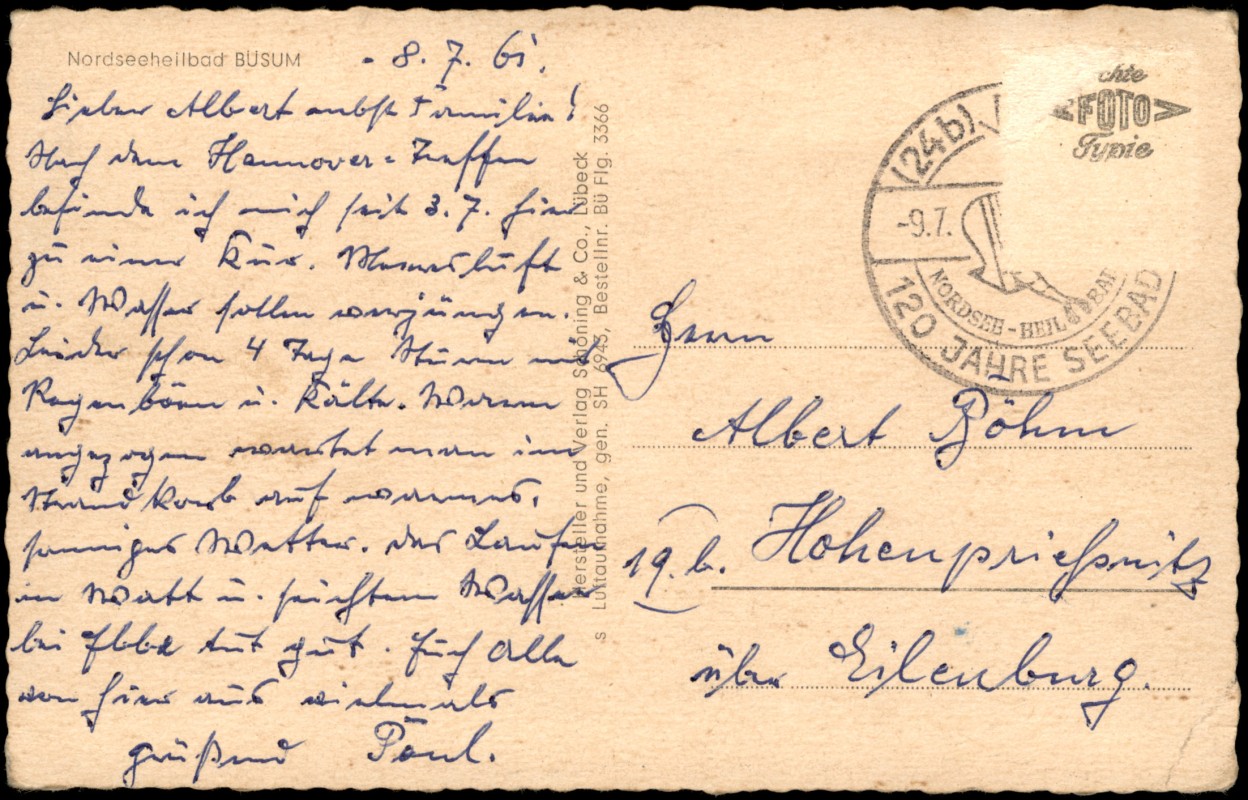 Nordseeheilbad BÜSUM
8.7.61.
Lieber Albert nebst Familie!
Nach dem Hannover-Treffen
befinde ich mich seit 3.7. hier
zu einer Kur. Meeresluft
u. Wasser sollen verjüngen.
Leider schon 4 Tage Sturm mit
Regenböen u. Kälte. Warm
angezogen wartet man im
Strandkorb auf warmes,
sonniges Wetter. Das Laufen
im Watt u. seichtem Wasser
bei Ebbe tut gut. Euch alle
von hier aus vielmals
grüßend Paul.
Hersteller und Verlag Schöning & Co., Lübeck
s Luftaufnahme, gen. SH 6943, Bestellnr. Bü Flg. 3366
(24b)
-9.7.
NORDSEE-HEILBAD
120 JAHRE SEEBAD
chte
FOTO
Typie
Herrn
Albert Böhm
19.b. Hohenprießnitz
über Eilenburg.